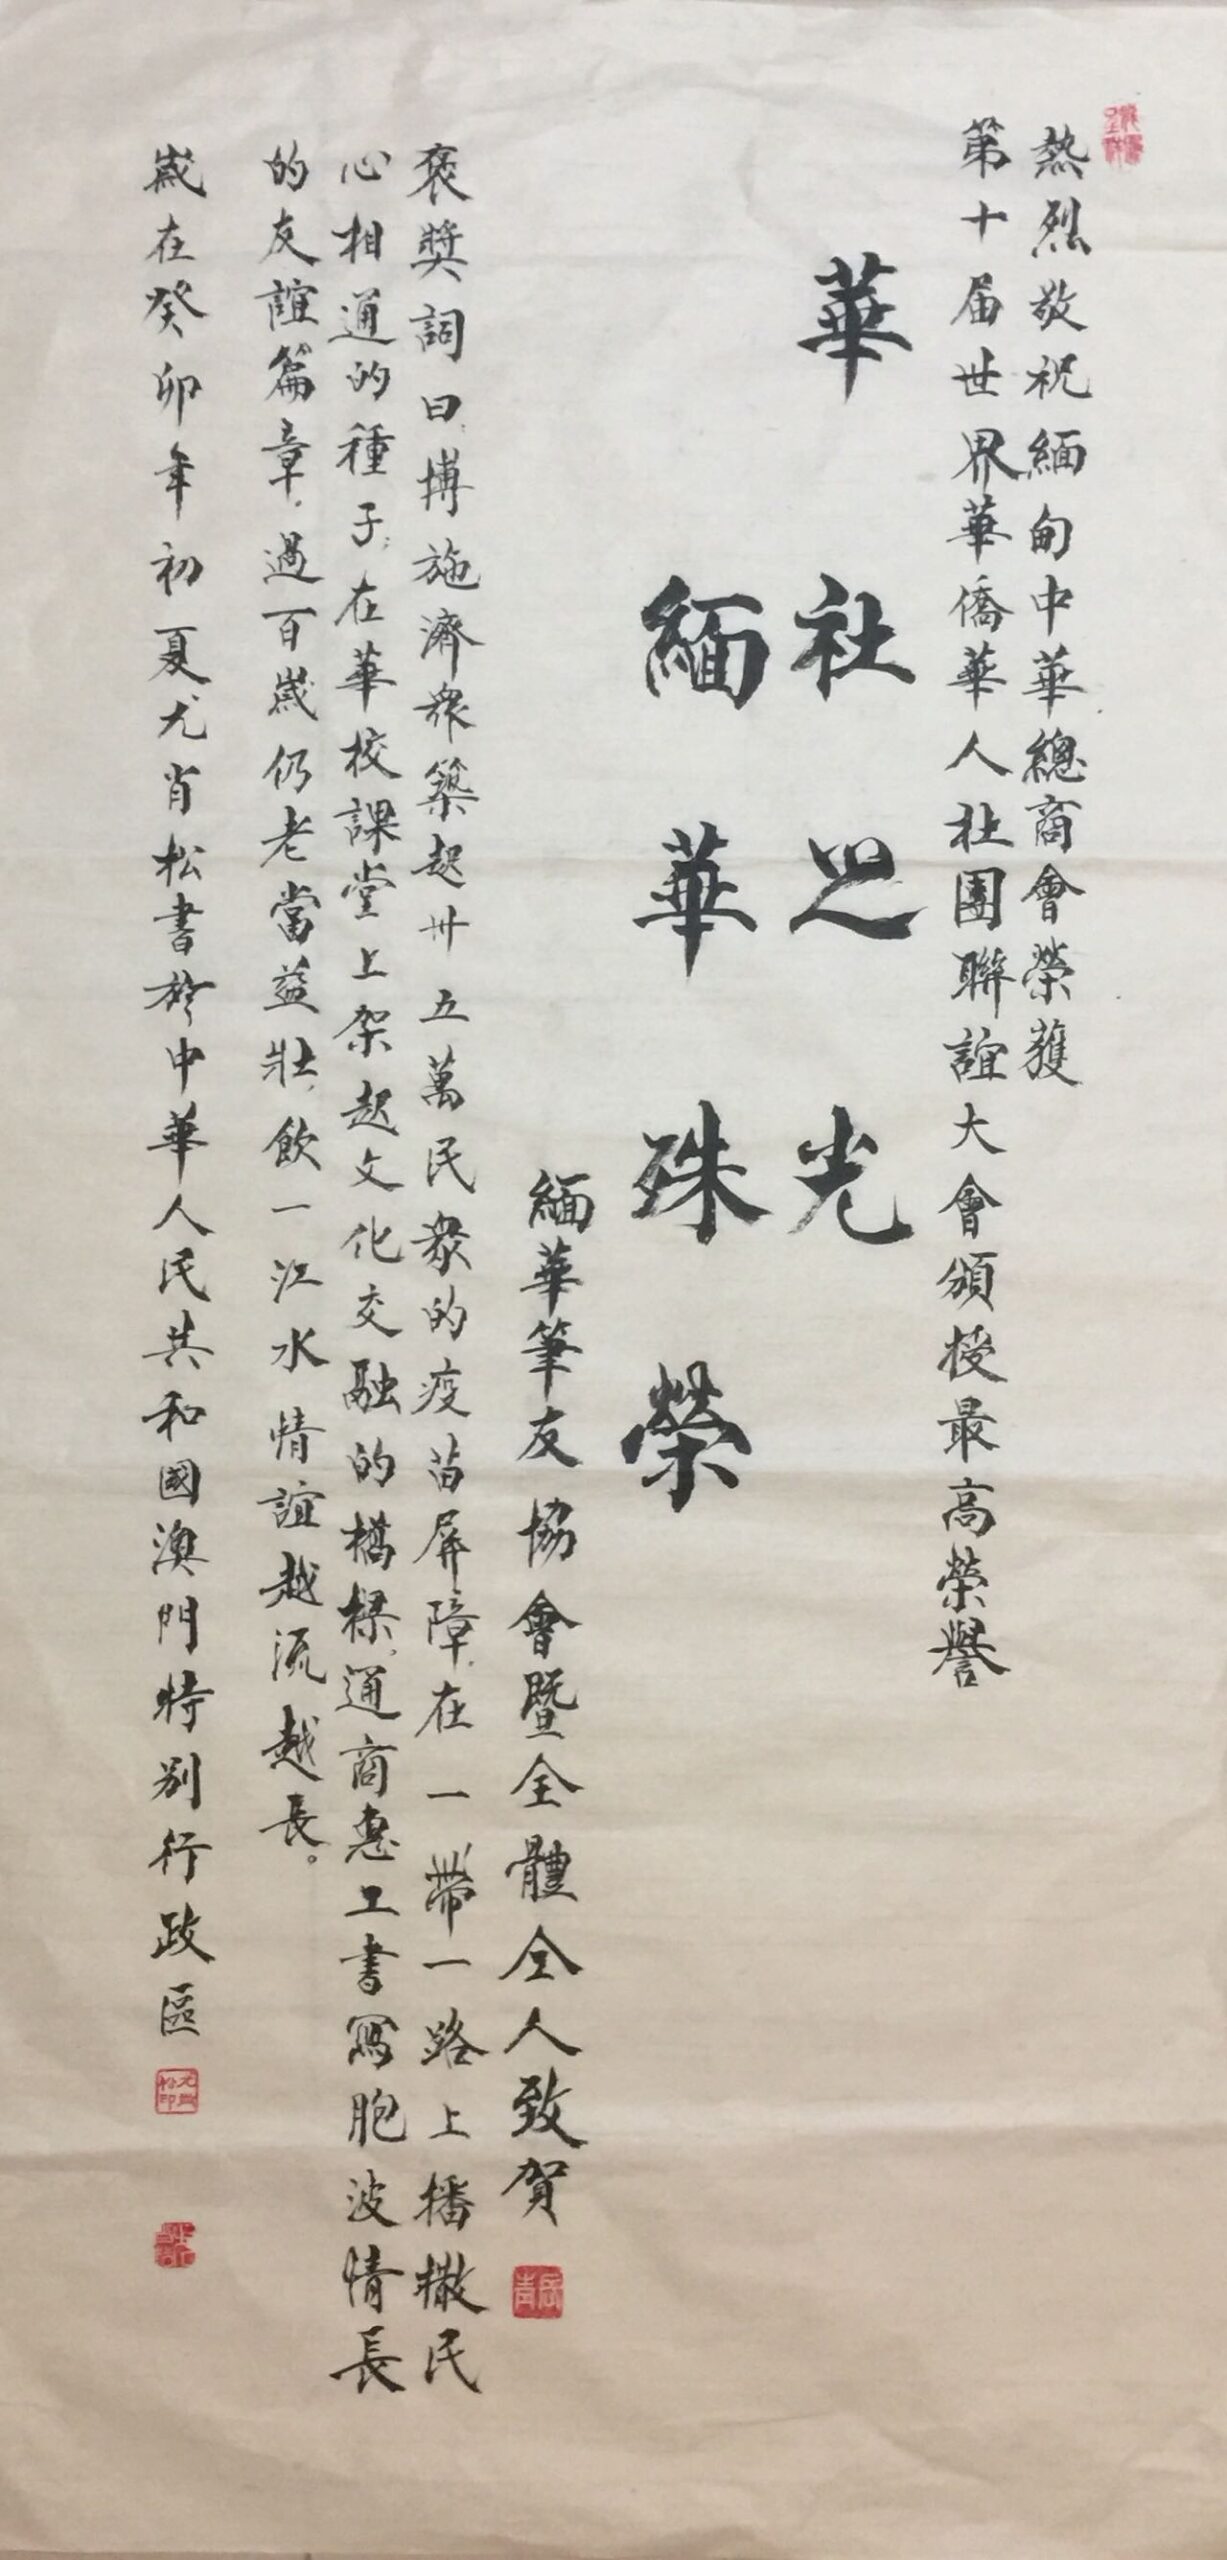 熱烈敬祝緬甸中華總商會榮獲
第十届世界華僑華人社團聯誼大會頒授最高榮譽
華社之光
緬華殊榮
緬華筆友協會暨全體仝人致賀
褒獎詞曰:博施濟眾築起卅五萬民眾的疫苗屏障,在一帶一路上播撒民
心相通的種子;在華校課堂上架起文化交融的橋樑,通商惠工書寫胞波情長
的友誼篇章,過百歲仍老當益壯,飲一江水情誼越流越長。
歲在癸卯年初夏尤肖松書於中華人民共和國澳門特別行政區